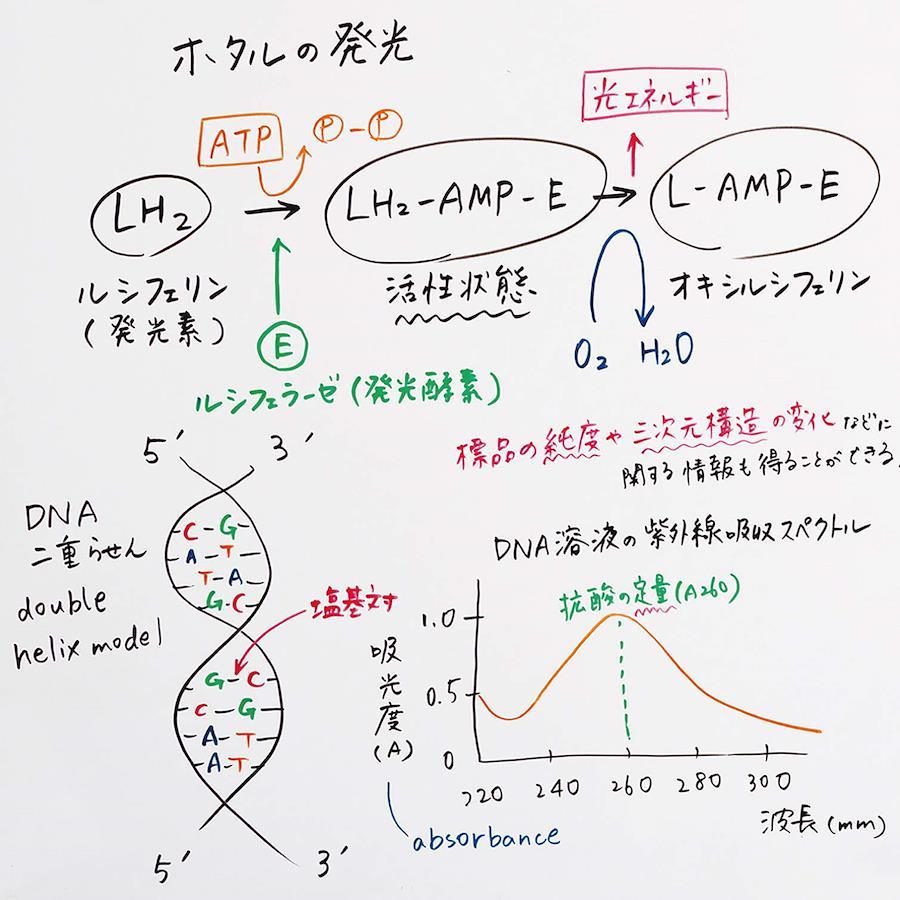 ホタルの発光
光エネルギー
ATP
P-P
LH2
LH2-AMP-E
L-AMP-E
ルシフェリン
(発光素)
活性状態
オキシルシフェリン
E
ルシフェラーゼ(発光酵素)
O2 H2O
標品の純度や三次元構造の変化などに
関する情報も得ることができる.
5′ 3′
DNA
二重らせん
double
helix model
C-G
A-T
T-A
G-C
塩基対
G-C
C-G
A-T
A-T
5′ 3′
DNA溶液の紫外線吸収スペクトル
拡酸の定量(A260)
1.0
0.5
0
吸光度(A)
220 240 260 280 300
波長(mm)
absorbance